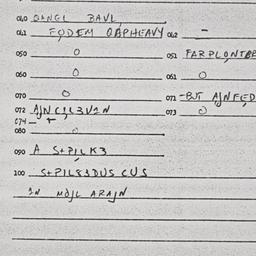 040 DANGL BAVL
041 FODEM OBPHEAVY 042 -
050 0 051 FARPLONTBE
060 0 061 0
070 0 071 -BUT AJNFED
072 AJNCIL3V2N 073 0
074 -
080 0
090 A S+PILK3
100 S+PILS3DUS CUS
IN MOJL ARAJN